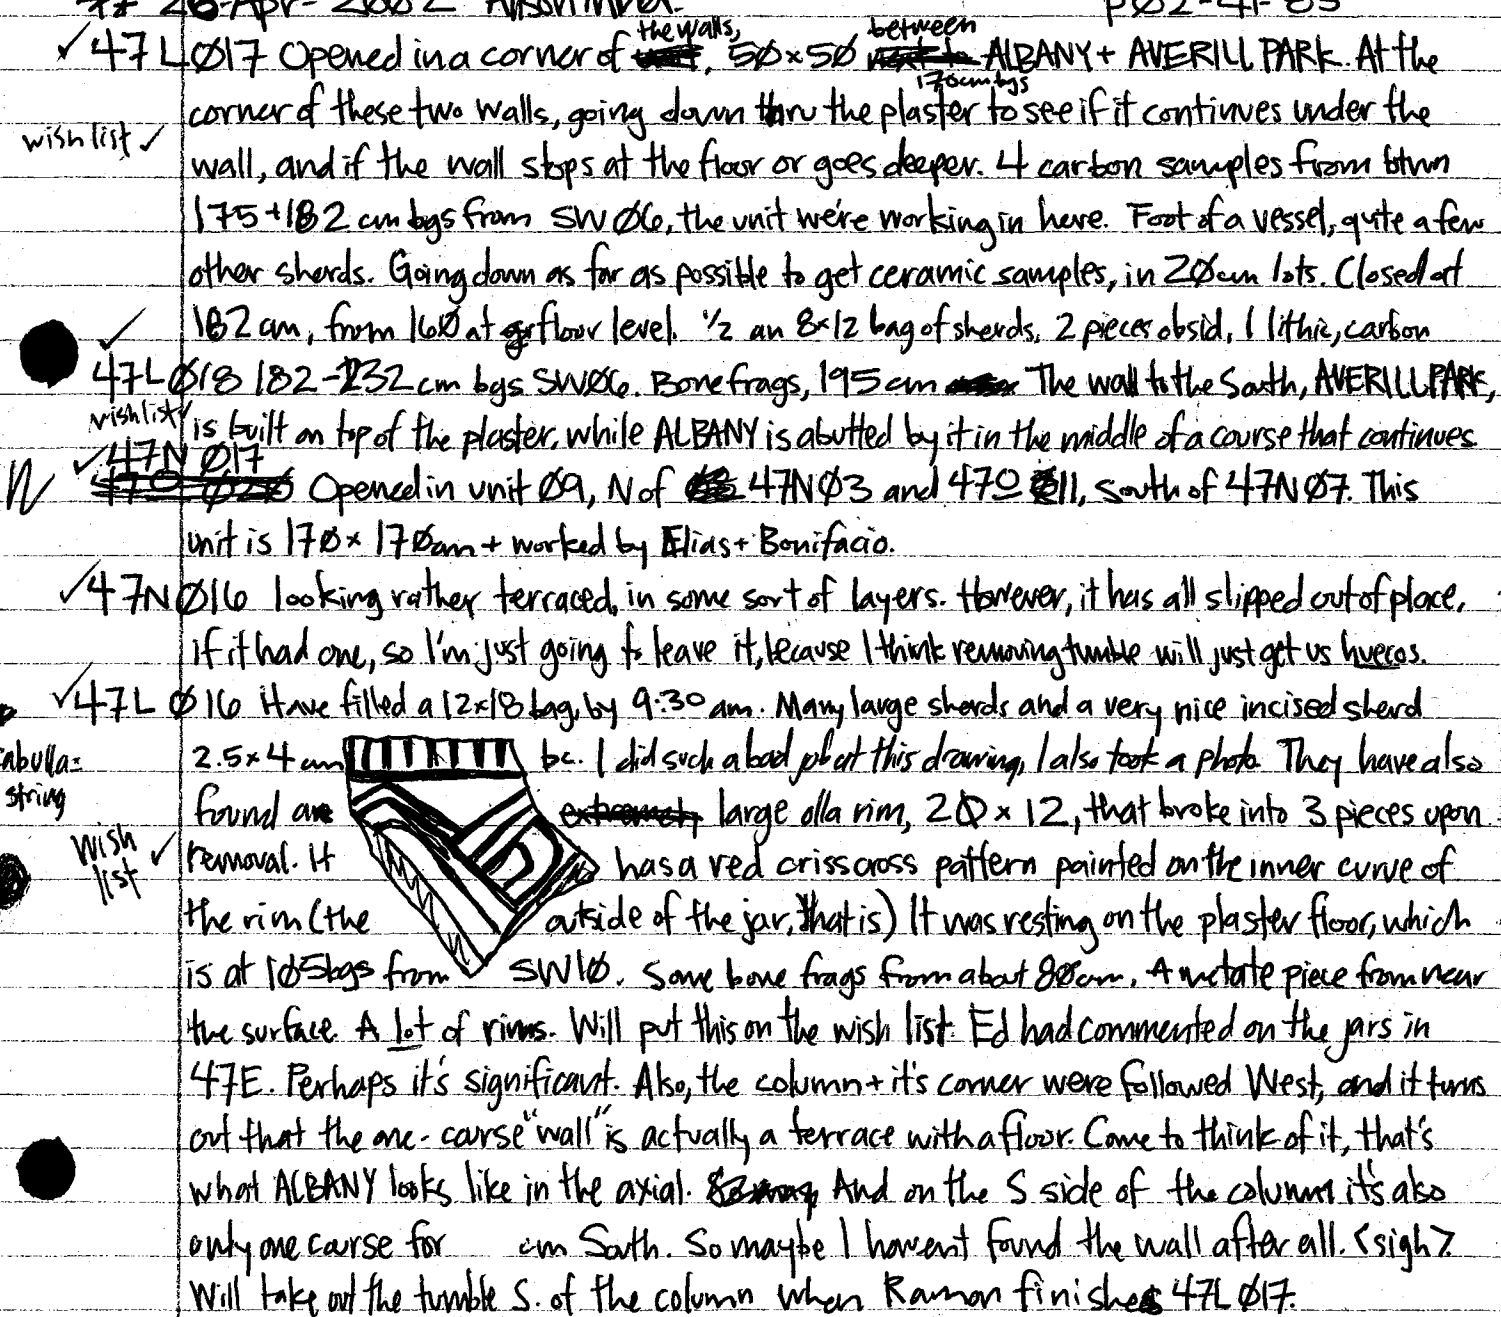 26-Apr-2002
✓ 47LØ17 Opened in a corner of the walls, 5Øx5Ø between ALBANY + AVERILL PARK. At the
170cmbgs
corner of these two walls, going down thru the plaster to see if it continues under the
wish list ✓
wall, and if the wall stops at the floor or goes deeper. 4 carbon samples from btwn
175+182 cm bgs from SWØ6, the unit we're working in here. Foot of a vessel, quite a few
other sherds. Going down as far as possible to get ceramic samples, in 2Øcm lots. Closed at
182 cm, from 16Ø at floor level. 1/2 an 8x12 bag of sherds, 2 pieces obsid, 1 lithic, carbon
✓ 47LØ18 182-232 cm bgs SWØ6. Bone frags, 195cm The wall to the South, AVERILL PARK,
wish list ✓
is built on top of the plaster, while ALBANY is abutted by it in the middle of a course that continues
N ✓ 47N Ø17 Opened in unit Ø9, N of 47NØ3 and 47O 11, south of 47NØ7. This
unit is 17Ø x 17Øcm + worked by Elias + Bonifacio.
✓ 47NØ16 looking rather terraced, in some sort of layers. However, it has all slipped out of place,
if it had one, so I'm just going to leave it, because I think removing tumble will just get us huecos.
✓ 47L Ø16 Have filled a 12x18 bag, by 9:30 am. Many large sherds and a very nice incised sherd
abulla=
string
2.5x4 cm bc. I did such a bad job at this drawing, I also took a photo. They have also
found a large olla rim, 2Ø x 12, that broke into 3 pieces upon
wish list ✓
removal. It has a red crisscross pattern painted on the inner curve of
the rim (the outside of the jar, that is) It was resting on the plaster floor, which
is at 1Ø5bgs from SW1Ø. Some bone frags from about 8Øcm. A metate piece from near
the surface. A lot of rims. Will put this on the wish list. Ed had commented on the jars in
47E. Perhaps it's significant. Also, the column + it's corner were followed West, and it turns
out that the one-course "wall" is actually a terrace with a floor. Come to think of it, that's
what ALBANY looks like in the axial. And on the S side of the column it's also
only one course for cm South. So maybe I haven't found the wall after all. <sigh>
Will take out the tumble S. of the column when Ramon finishes 47LØ17.